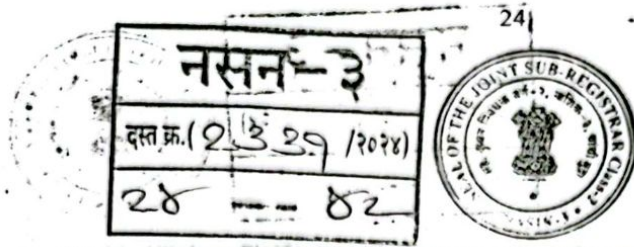 24
नसन-३
दस्त क्र.( 2339 /२०२४)
२४ -- ४२
SEAL OF THE JOINT SUB-REGISTRAR Class-2